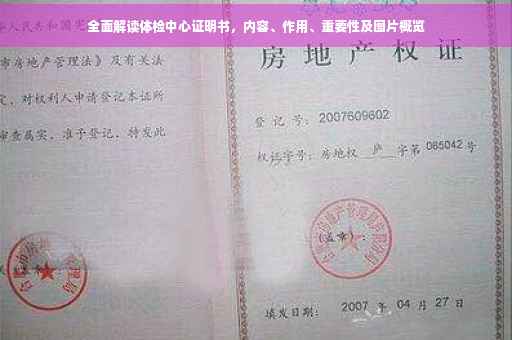 全面解读体检中心证明书，内容、作用、重要性及图片概览
人民共和国宪
市房地产管理法》及有关法
定，对权利人申请登记本证所
审查属实，准予登记，特发此
房地产权证
登记号：2007609602
权证字号：房地权 庐 字第 085042 号
(盖章)：
填发日期： 2007 年 04 月 27 日